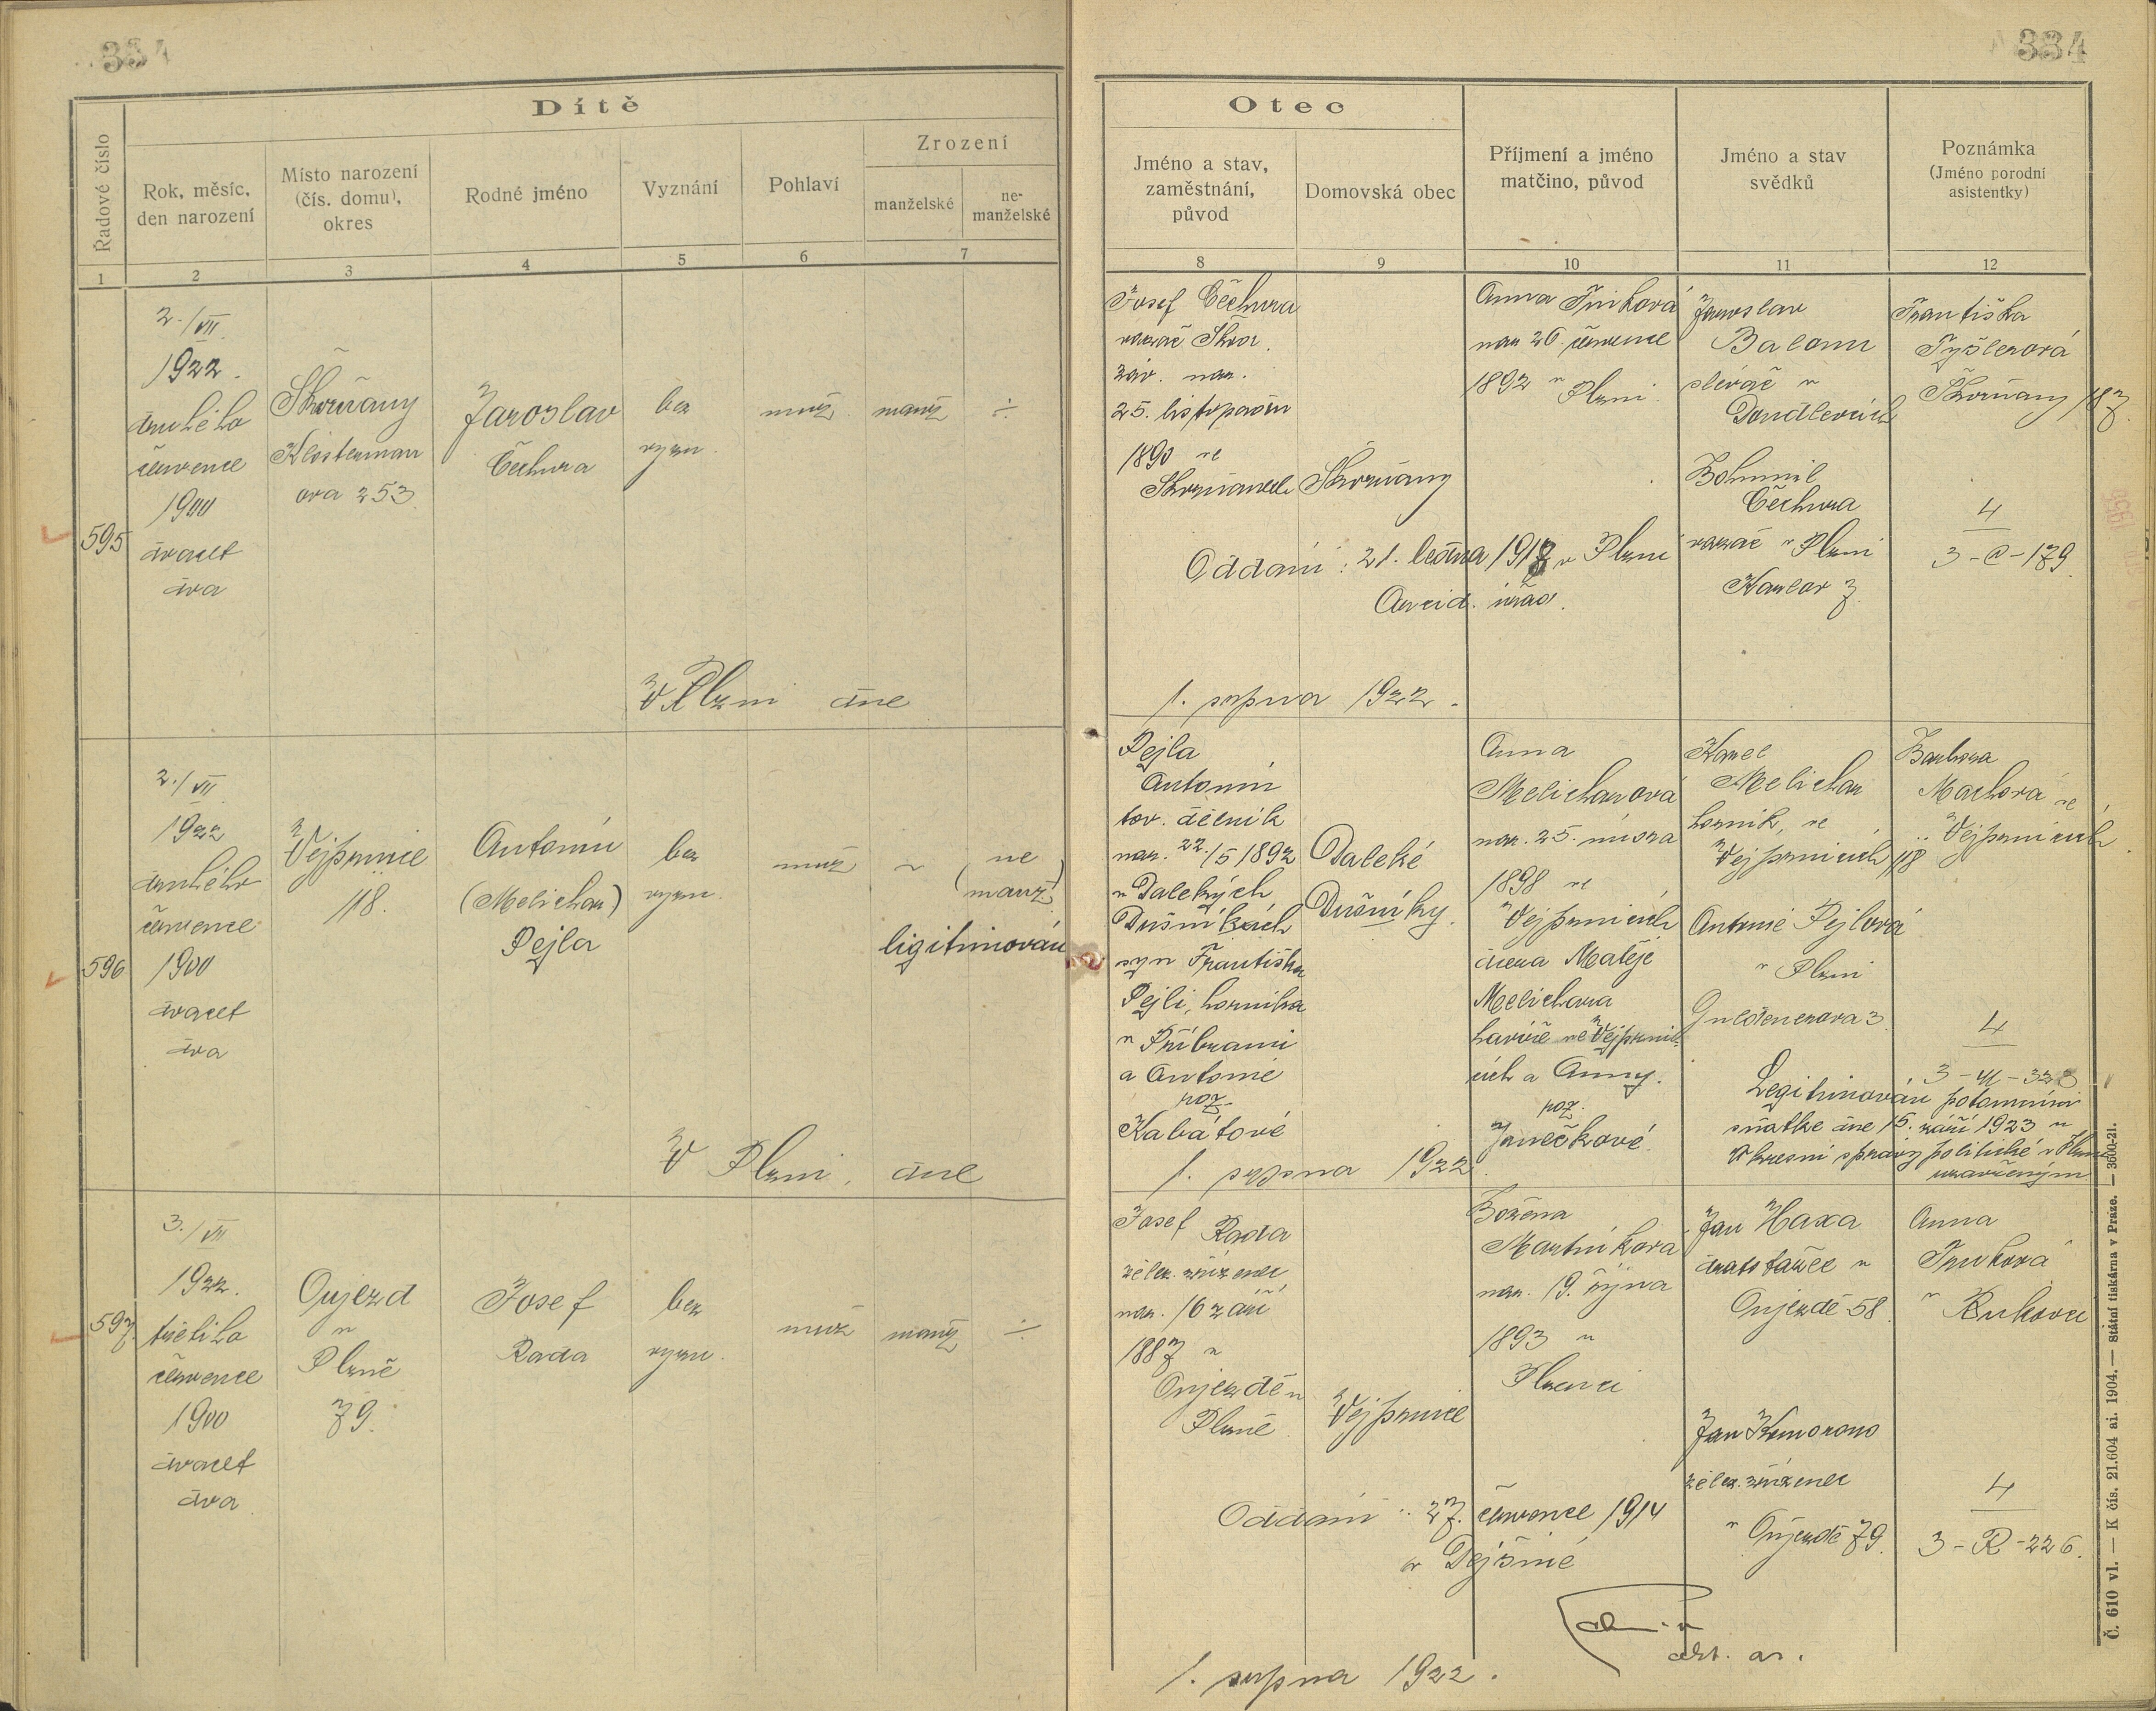 334
334
Dítě
Řadové číslo
Rok, měsíc,
den narození
Místo narození
(čís. domu),
okres
Rodné jméno
Vyznání
Pohlaví
Zrození
manželské
ne-
manželské
Otec
Jméno a stav,
zaměstnání,
původ
Domovská obec
Příjmení a jméno
matčino, původ
Jméno a stav
svědků
Poznámka
(Jméno porodní
asistentky)
1
2
3
4
5
6
7
8
9
10
11
12
595
2./VII
1922.
druhého
července
1900
dvacet
dva
Skvrňany
Klosterman
ova 253
Jaroslav
Čechura
bez
vyzn.
muž.
manž
÷
Josef Čechura
závod. nar.
25. listopadu
1890 ve
Skvrňanech
Skvrňany
nar 26. července
1892 v Plzni.
Jaroslav
slévač v
Doudlevcích
Bohumil
Čechura
v Plzni
Františka
Tyšlerová
Skvrňany 187.
4
3-C-179.
Oddáni: 21. ledna 1918 v Plzni
Arcid. úřad.
V Plzni dne
1. srpna 1922.
596
2./VII
1922
druhého
července
1900
dvacet
dva
Vejprnice
118.
Antonín
(Melichar)
Pejla
bez
vyzn.
muž
~
ne
(manž)
ligitimován
Pejla
Antonín
tov. dělník
nar. 22./5 1892
v Dalekých
Dušníkách
syn Františka
Pejli, horníka
v Příbrami
a Antonie
roz.
Kabátové
Daleké
Dušníky.
Anna
Melicharová
nar. 25. února
1898 ve
Vejprnicích
dcera Matěje
Melichara
havíře ve Vejprnic-
ích a Anny.
roz.
Janečkové.
Karel
Melichar
horník, ve
Vejprnicích 118
Antonie Pejlová
v Plzni
Guldenerova 3.
Barbora
Machová ve
Vejprnicích.
4
3-M-338
Legitimován potomním
sňatkem dne 15. září 1923 u
okresní správy politické v Plzni
uzavřeným
V Plzni, dne
1. srpna 1922.
597.
3./VII
1922.
třetího
července
1900
dvacet
dva.
Oujezd
u
Plzně
79.
Josef
Rada
bez
vyzn.
muž
manž
÷
Josef Rada
želez. zřízenec
nar. 16 září
1887 v
Oujezdě u
Plzně.
Vejprnice
Božena
Martínková
nar. 19. října
1893 v
Plzenci
Jan Haxa
v
Oujezdě 58.
Jan
želez. zřízenec
v Oujezdě 79.
Anna
v
4
3-R-226.
Oddáni: 27. července 1914
v Dejšině
1. srpna 1922.
Č. 610 vl. — K čís. 21.604 ai. 1904. — Státní tiskárna v Praze. — 3600-21.